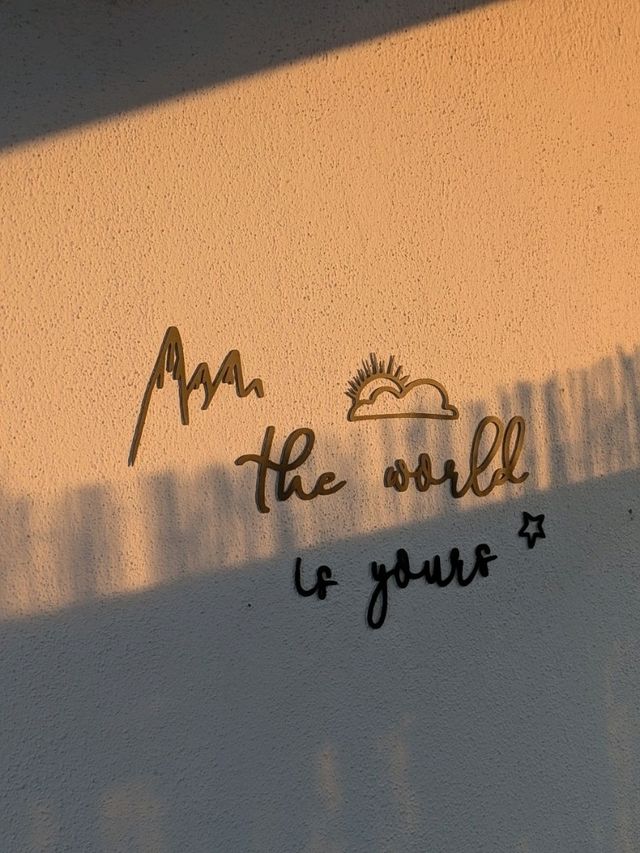 the world
is yours